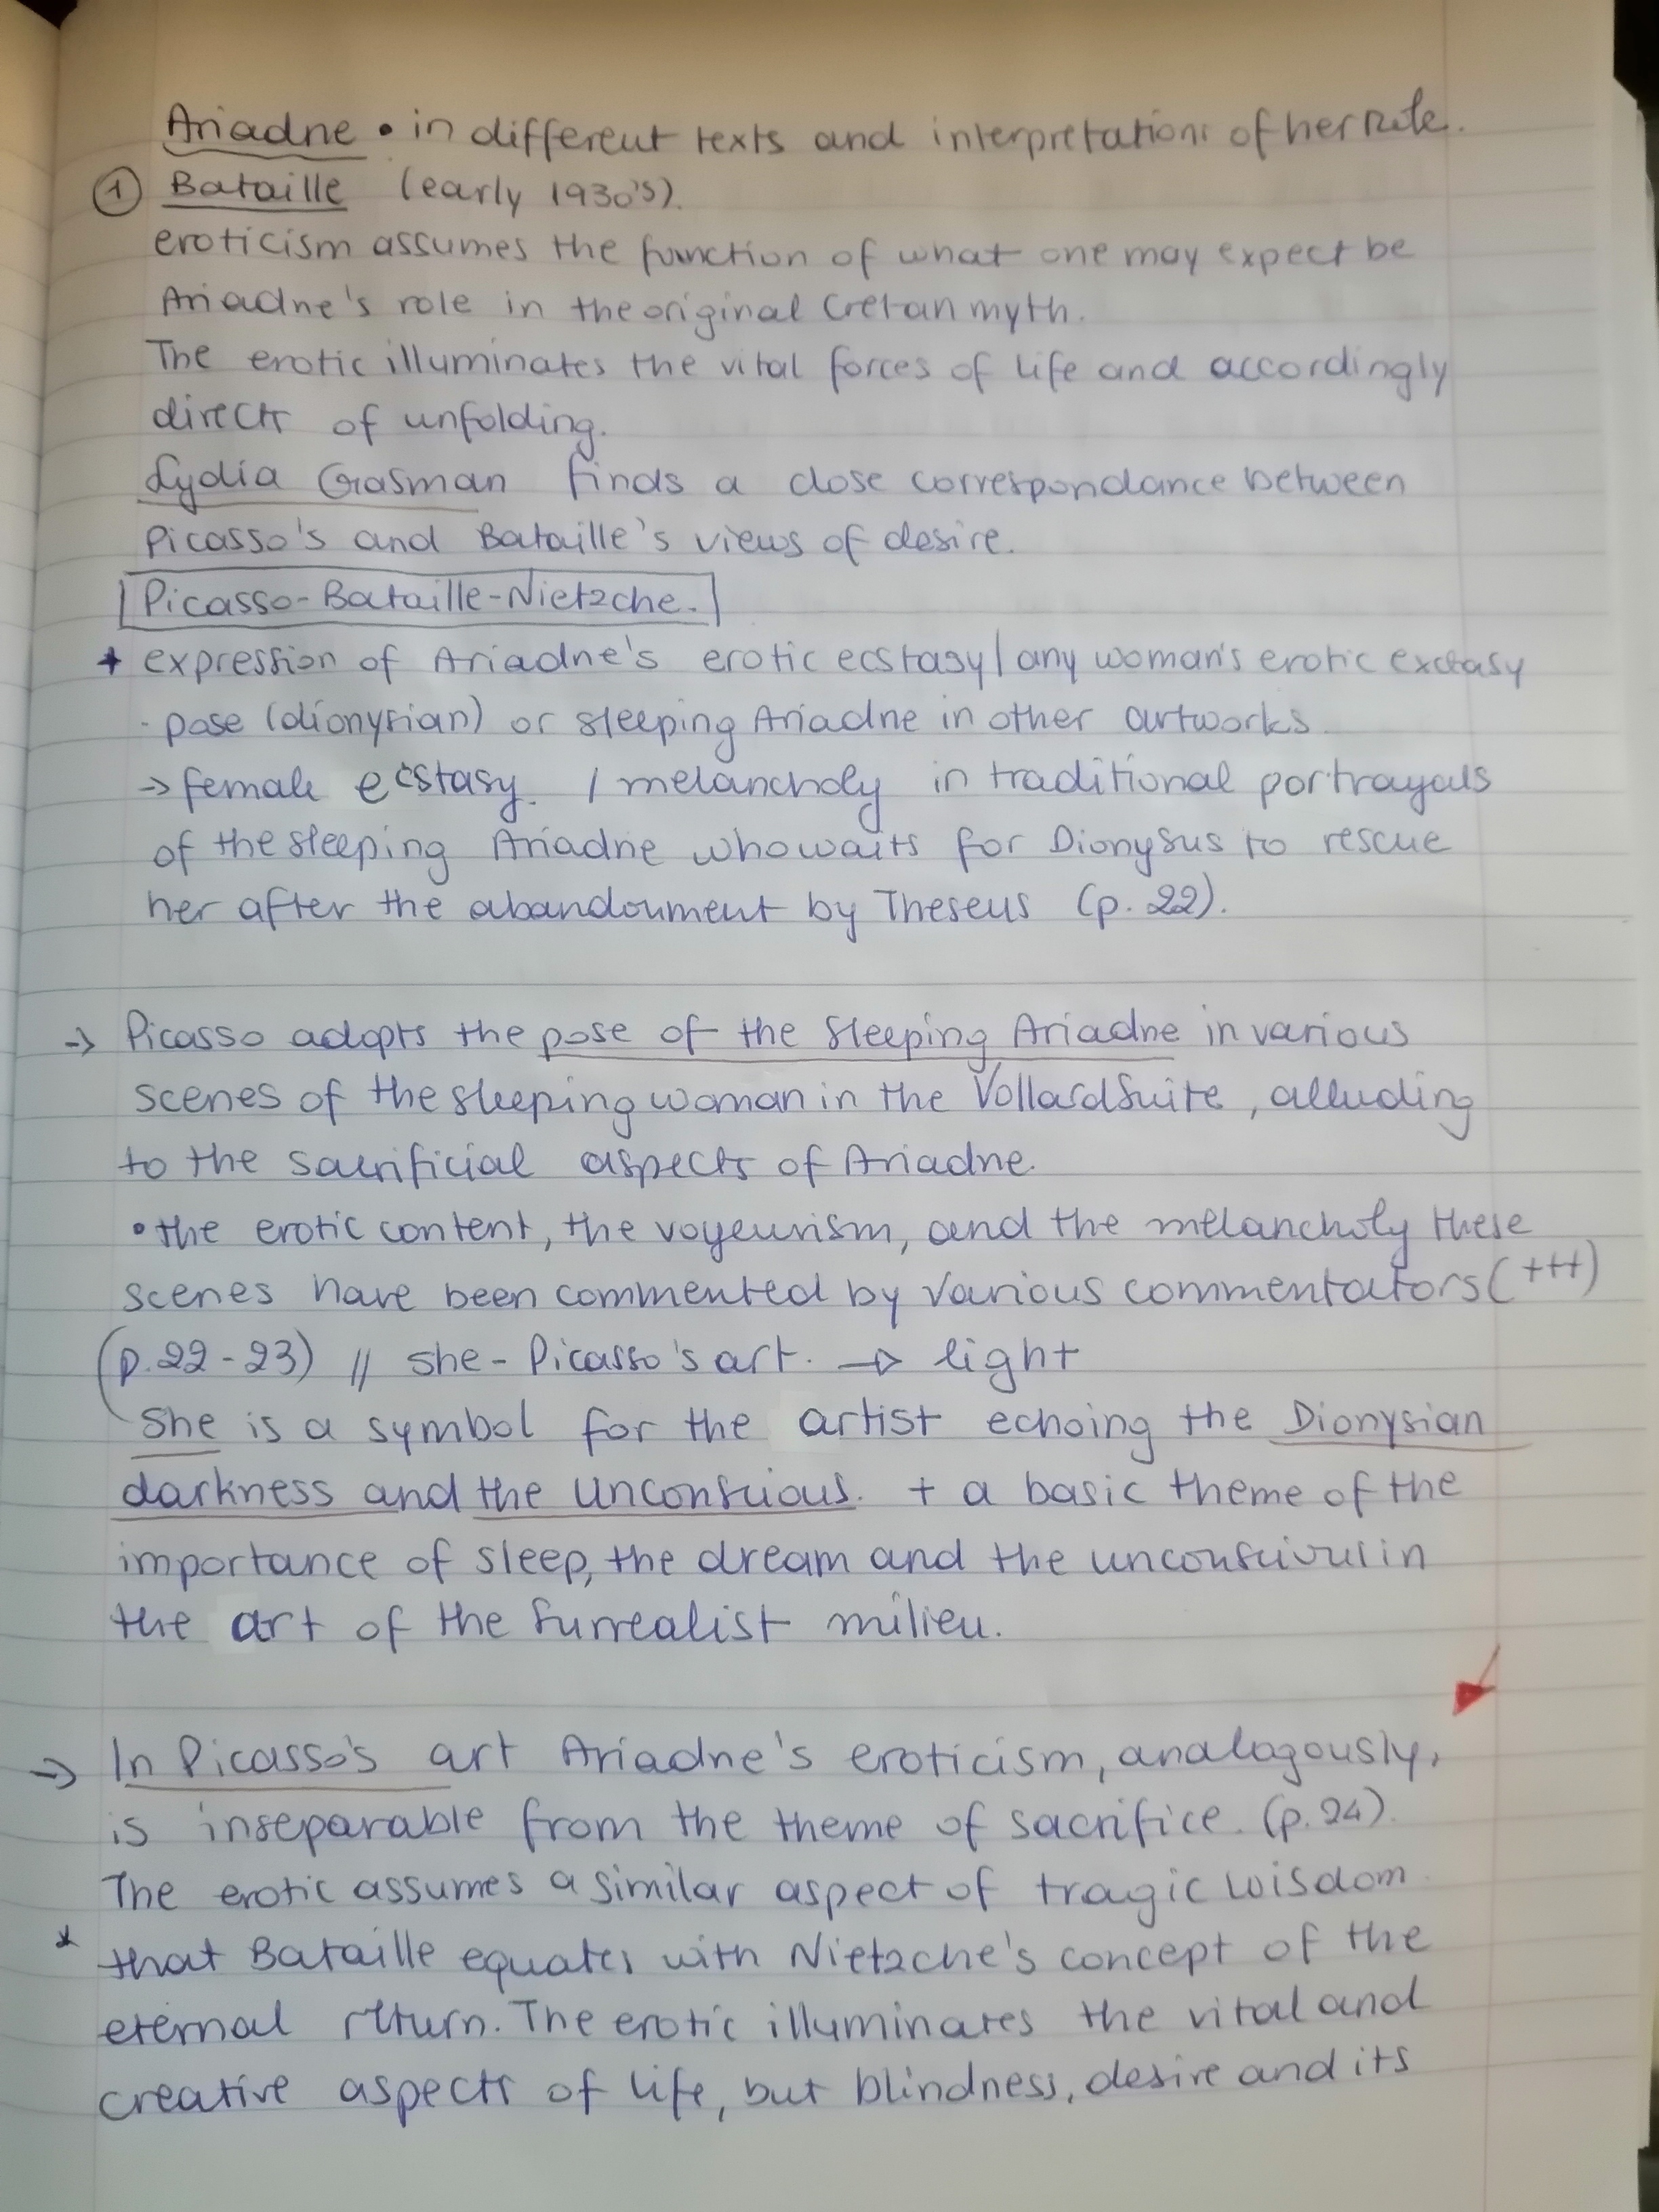 Ariadne • in different texts and interpretations of her role.
① Bataille (early 1930's).
eroticism assumes the function of what one may expect be
Ariadne's role in the original Cretan myth.
The erotic illuminates the vital forces of life and accordingly
directs of unfolding.
Lydia Gasman finds a close correspondance between
Picasso's and Bataille's views of desire.
Picasso-Bataille-Nietzche.
* expression of Ariadne's erotic ecstasy / any woman's erotic exctasy
- pose (dionysian) or sleeping Ariadne in other artworks.
→ female ecstasy. / melancholy in traditional portrayals
of the sleeping Ariadne who waits for Dionysus to rescue
her after the abandonment by Theseus (p. 22).
→ Picasso adopts the pose of the sleeping Ariadne in various
scenes of the sleeping woman in the Vollard Suite, alluding
to the sacrificial aspects of Ariadne.
• the erotic content, the voyeurism, and the melancholy these
scenes have been commented by various commentators (+++)
(p.22-23) // she - Picasso's art. → light
She is a symbol for the artist echoing the Dionysian
darkness and the unconscious. + a basic theme of the
importance of sleep, the dream and the unconscious in
the art of the surrealist milieu.
→ In Picasso's art Ariadne's eroticism, analogously,
is inseparable from the theme of sacrifice. (p.24).
The erotic assumes a similar aspect of tragic wisdom
* that Bataille equates with Nietzche's concept of the
eternal return. The erotic illuminates the vital and
creative aspects of life, but blindness, desire and its